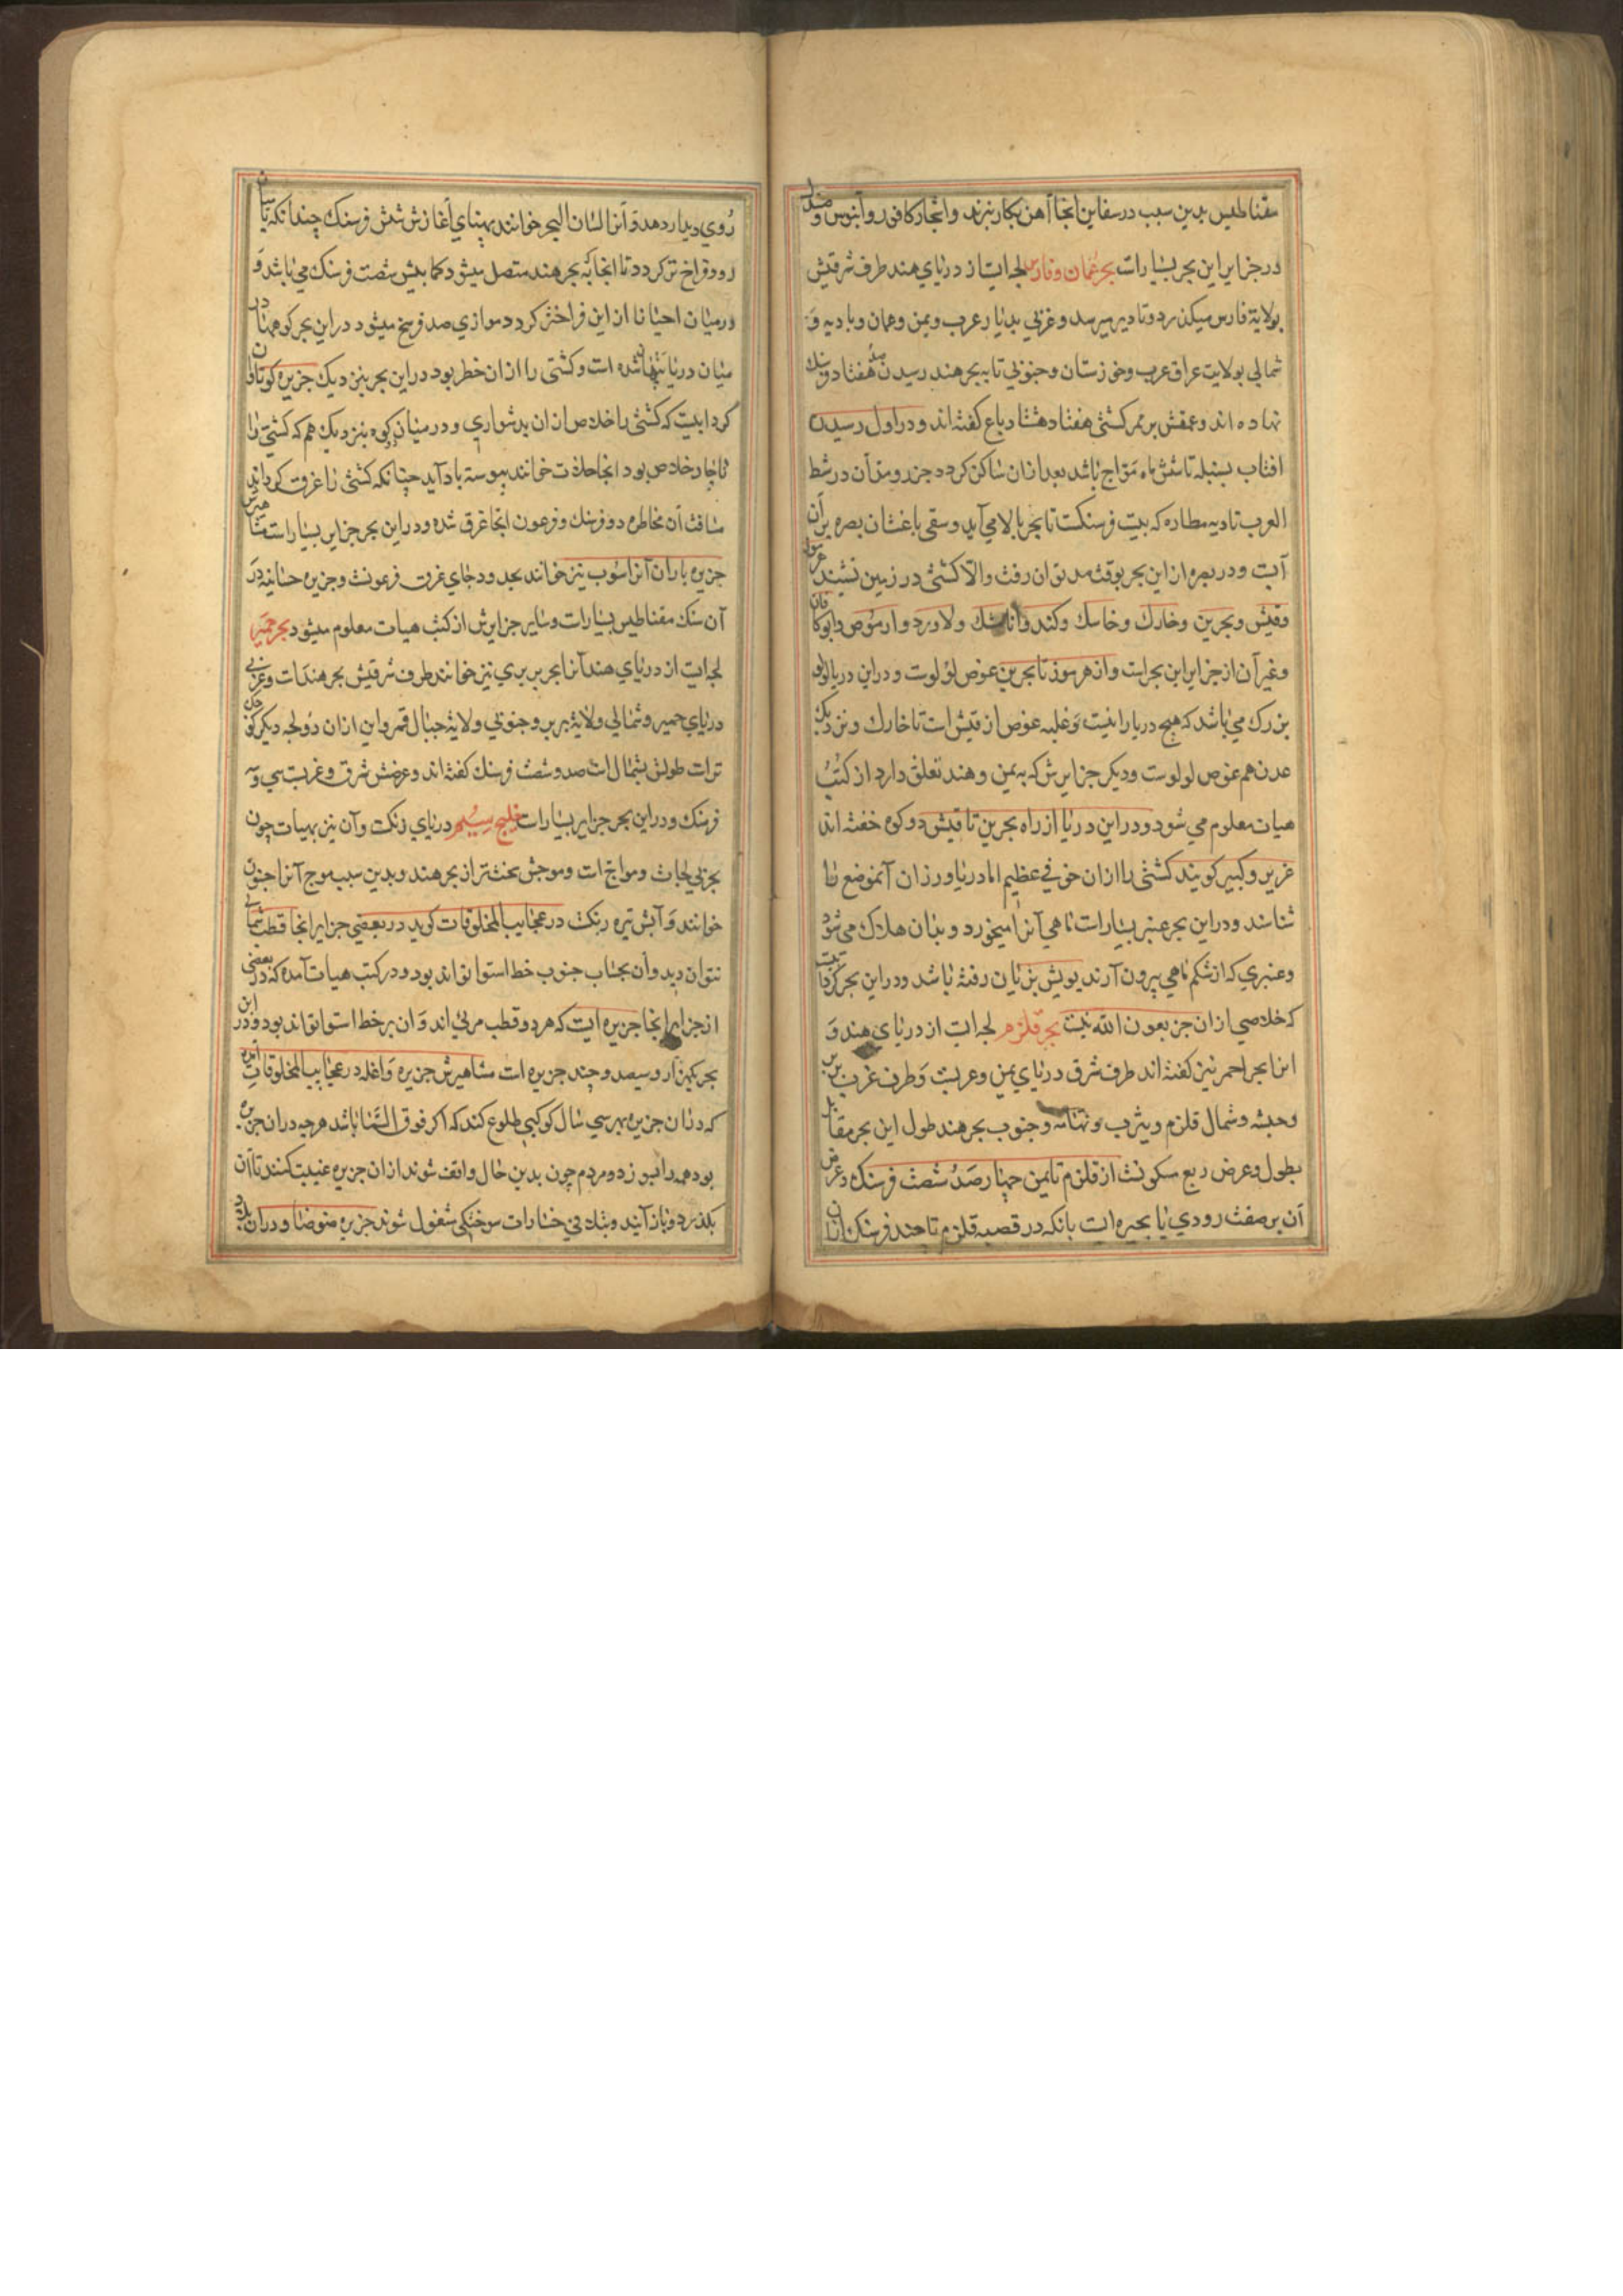 مقناطیس بدین سبب در سفاین انجا آهن بکار نبرند و اشجار کافور و آبنوس و صندل
در جزایر این بحر بسیارست بحر عمان و فارس لجه ایست از دریای هند طرف شرقیش
بولایة فارس میکذرد و تا دیر میرسد و غربی بدیار عرب و یمن و عمان و بادیه و
شمالی بولایت عراق عرب و خوزستان و جنوبی تا به بحر هند رسیدن صد هفتاد فرسنك
نهاده اند و عمقش بر ممر کشتی هفتاد هشتاد باع کفته اند و در اول رسیدن
افتاب بسنبله تا شش ماه مواج باشد بعد ازان ساکن کردد جزر و مد آن در شط
العرب تا دیه مطاره که بیست فرسنکست تا بحر بالا می آید و سقی باغستان بصره بر آن
آبست و در بصره از این بحر بوقت مد توان رفت والا کشتی در زمین نشیند
و قیش و بحرین و خارك و خاسك و کند و و لاورد و ارموص و ابرکافان
و غیر آن از جزایر این بحرست و از هرموز تا بحرین غوص لؤلوست و در این دریا لولو
بزرك می باشد که هیچ دریا را نیست و غلبه غوص از قیش است تا خارك و نزدیك
عدن هم غوص لولوست و دیکر جزایرش که به یمن و هند تعلق دارد از کتب
هیات معلوم می شود و در این دریا از راه بحرین تا قیش دو کوه خفته اند
عزیر و کبیر کویند کشتی را ازان خوفی عظیم اما دریاورزان آنموضع را
شناسند و در این بحر عنبر بسیارست ماهی آنرا میخورد و بدان هلاك می شود
و عنبری که از شکم ماهی بیرون آرند بویش بزیان رفته باشد و در این بحر کردابیست
که خلاصی ازان جز بعون الله نیست بحر قلزم لجه ایست از دریای هند و
انرا بحر احمر نیز کفته اند طرف شرق دریای یمن و عربست و طرف غرب بربر
و حبشه و شمال قلزم و یثرب و تهامه و جنوب بحر هند طول این بحر مقابل
بطول و عرض ربع مسکونست از قلزم تا یمن چهار صد شصت فرسنك و عرض
آن بر صفت رودی یا بحیره است بانکه در قصبه قلزم تا چند فرسنك ازان
روی دیدار دهد و آنرا لسان البحر خوانند بهنای آغازش شش فرسنك چندانکه
رود فراخ تر کردد تا انجا که به بحر هند متصل میشود کمابیش شصت فرسنك می باشد و
در میان احیانا ازان این فراختر کردد موازی صد فرسخ میشود در این بحر کوهها در
میان دریا پنهان شده است و کشتی را ازان خطر بود در این بحر بنزدیك جزیره
کردابیست که کشتی را خلاص ازان بدشواری و در میان کوه بنزدیك هم که کشتی را
ناچار خلاص بود انجا خوانند پیوسته باد آید چنانکه کشتی را غرق کرداند
مسافت آن مخاطره دو فرسنك و فرعون انجا غرق شده و در این بحر جزایر بسیارست
جزیره باران آنرا نیز خوانند بحد و جای غرق فرعونست و جزیره در
آن سنك مقناطیس بسیارست و سایر جزایرش از کتب هیات معلوم میشود بحر حمیر
لجه ایست از دریای هند آنرا بحر بربری نیز خوانند طرف شرقیش بحر هندست و غربی
دریای حمیر و شمالی ولایة بربر و جنوبی ولایة جبال قمر و این ازان دو لجه دیکر
ترست طولش بشمال است صد و شصت فرسنك کفته اند و عرضش شرق و غربست سی و سه
فرسنك و در این بحر جزایر بسیارست خلیج سیم دریای زنکست و آن نیز بهیات چون
بحر بی لجاست و مواج است و موجش سخت تر از بحر هند و بدین سبب موج آنرا جنون
خوانند و آبش تیره رنکست در عجایب المخلوقات کوید در بعضی جزایر انجا قطب شمالی
نتوان دید و آن بجانب جنوب خط استوا تواند بود و در کتب هیات آمده که در بعضی
از جزایر انجا جزیره ایست که هر دو قطب مرئی اند و آن بر خط استوا تواند بود و در این
بحر یکهزار و سیصد و چند جزیره است مشاهیرش جزیره واغله در عجایب المخلوقات آمده
که دران جزیره بهر سی سال کوکبی طلوع کند که اکر فوق السما باشد هرچه دران جزیره
بود همه را بسوزد و مردم چون بدین حال واقف شوند ازان جزیره غیبت کنند تا آن
بکذرد و باز آیند و بتلافی خسارات سوختکی مشغول شوند جزیره ضوضا و دران